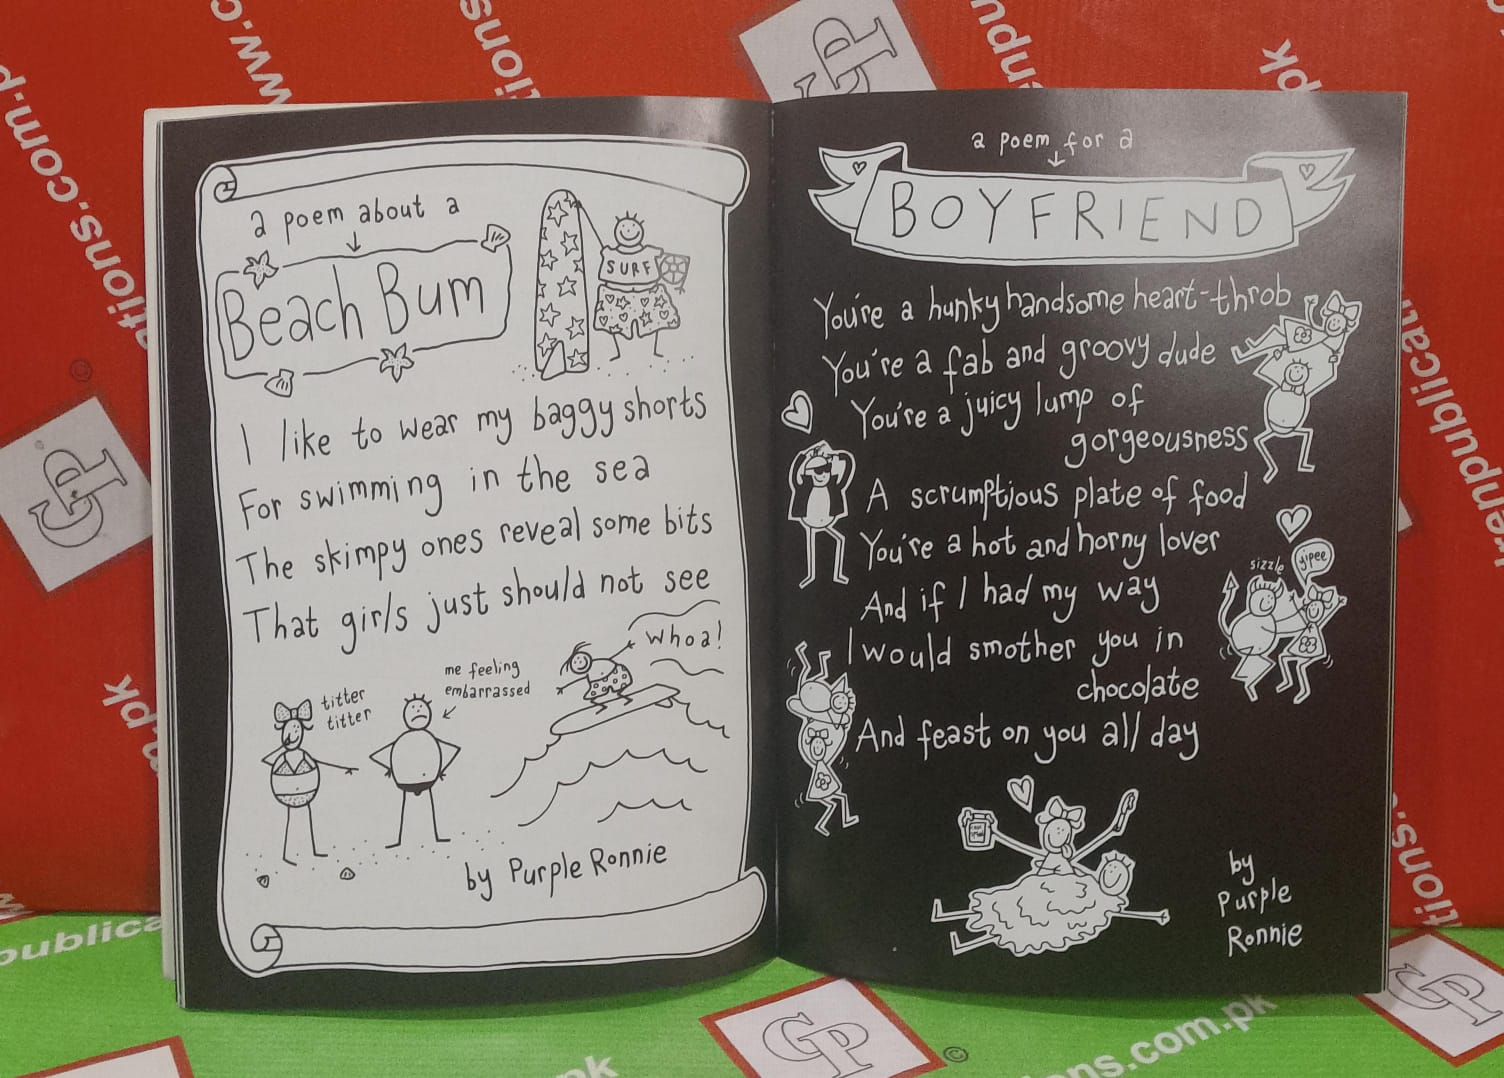 a poem about a
Beach Bum
SURF
I like to wear my baggy shorts
For swimming in the sea
The skimpy ones reveal some bits
That girls just should not see
whoa!
me feeling
embarrassed
titter
titter
by Purple Ronnie
a poem for a
BOYFRIEND
You're a hunky handsome heart-throb
You're a fab and groovy dude
You're a juicy lump of
gorgeousness
A scrumptious plate of food
You're a hot and horny lover
And if I had my way
I would smother you in
chocolate
And feast on you all day
sizzle
yipee
by
Purple
Ronnie
GP
GP
GP
GP
©
©
www.c
tions.com.p
enp
pk
publica
ons.com.pk